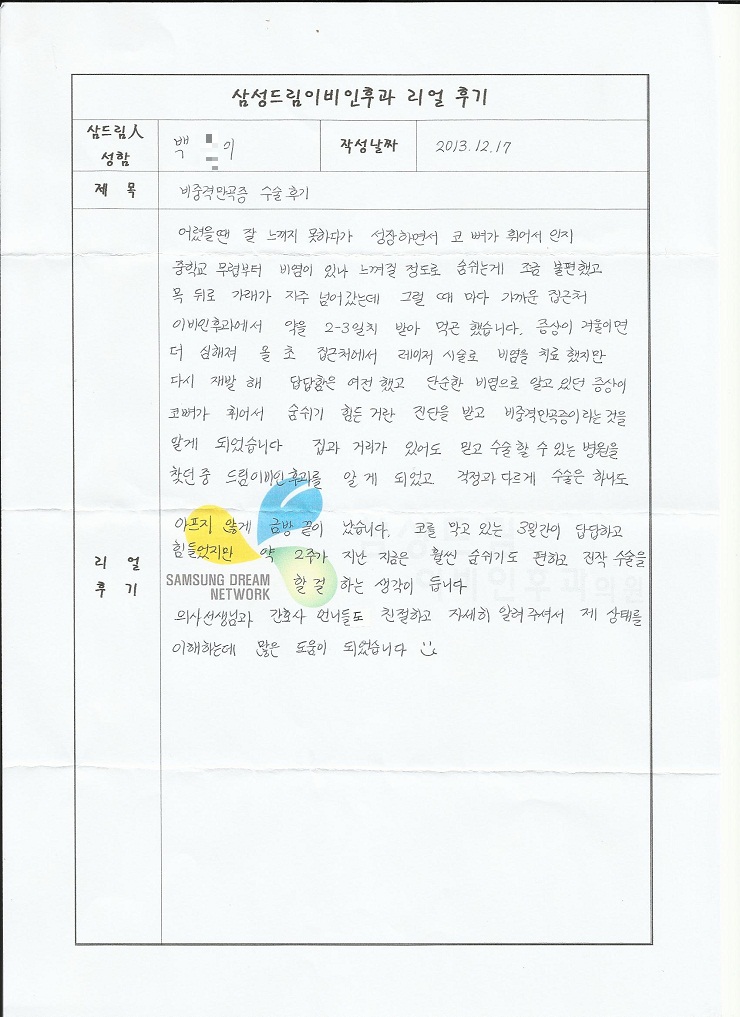 삼성드림이비인후과 리얼 후기
삼드림人 성함
백 이
작성날짜
2013.12.17
제 목
비중격만곡증 수술후기
어렸을땐 잘 느끼지 못하다가 성장하면서 코 뼈가 휘어서 인지
중학교 무렵부터 비염이 있나 느껴질 정도로 숨쉬는게 조금 불편했고
목 뒤로 가래가 자주 넘어갔는데 그럴 때 마다 가까운 집근처
이비인후과에서 약을 2-3일치 받아 먹곤 했습니다. 증상이 겨울이면
더 심해져 올 초 집근처에서 레이저 시술로 비염을 치료 했지만
다시 재발 해 답답함은 여전 했고 단순한 비염으로 알고 있던 증상이
코뼈가 휘어서 숨쉬기 힘든 거란 진단을 받고 비중격만곡증이라는 것을
알게 되었습니다 집과 거리가 있어도 믿고 수술 할 수 있는 병원을
찾던 중 드림이비인후과를 알 게 되었고 걱정과 다르게 수술은 하나도
아프지 않게 금방 끝이 났습니다. 코를 막고 있는 3일간이 답답하고
힘들었지만 약 2주가 지난 지금은 훨씬 숨쉬기도 편하고 진작 수술을
할 걸 하는 생각이 듭니다
의사선생님과 간호사 언니들도 친절하고 자세히 알려주셔서 제 상태를
이해하는데 많은 도움이 되었습니다
리 얼
후 기
SAMSUNG DREAM
NETWORK
이비인후과의원